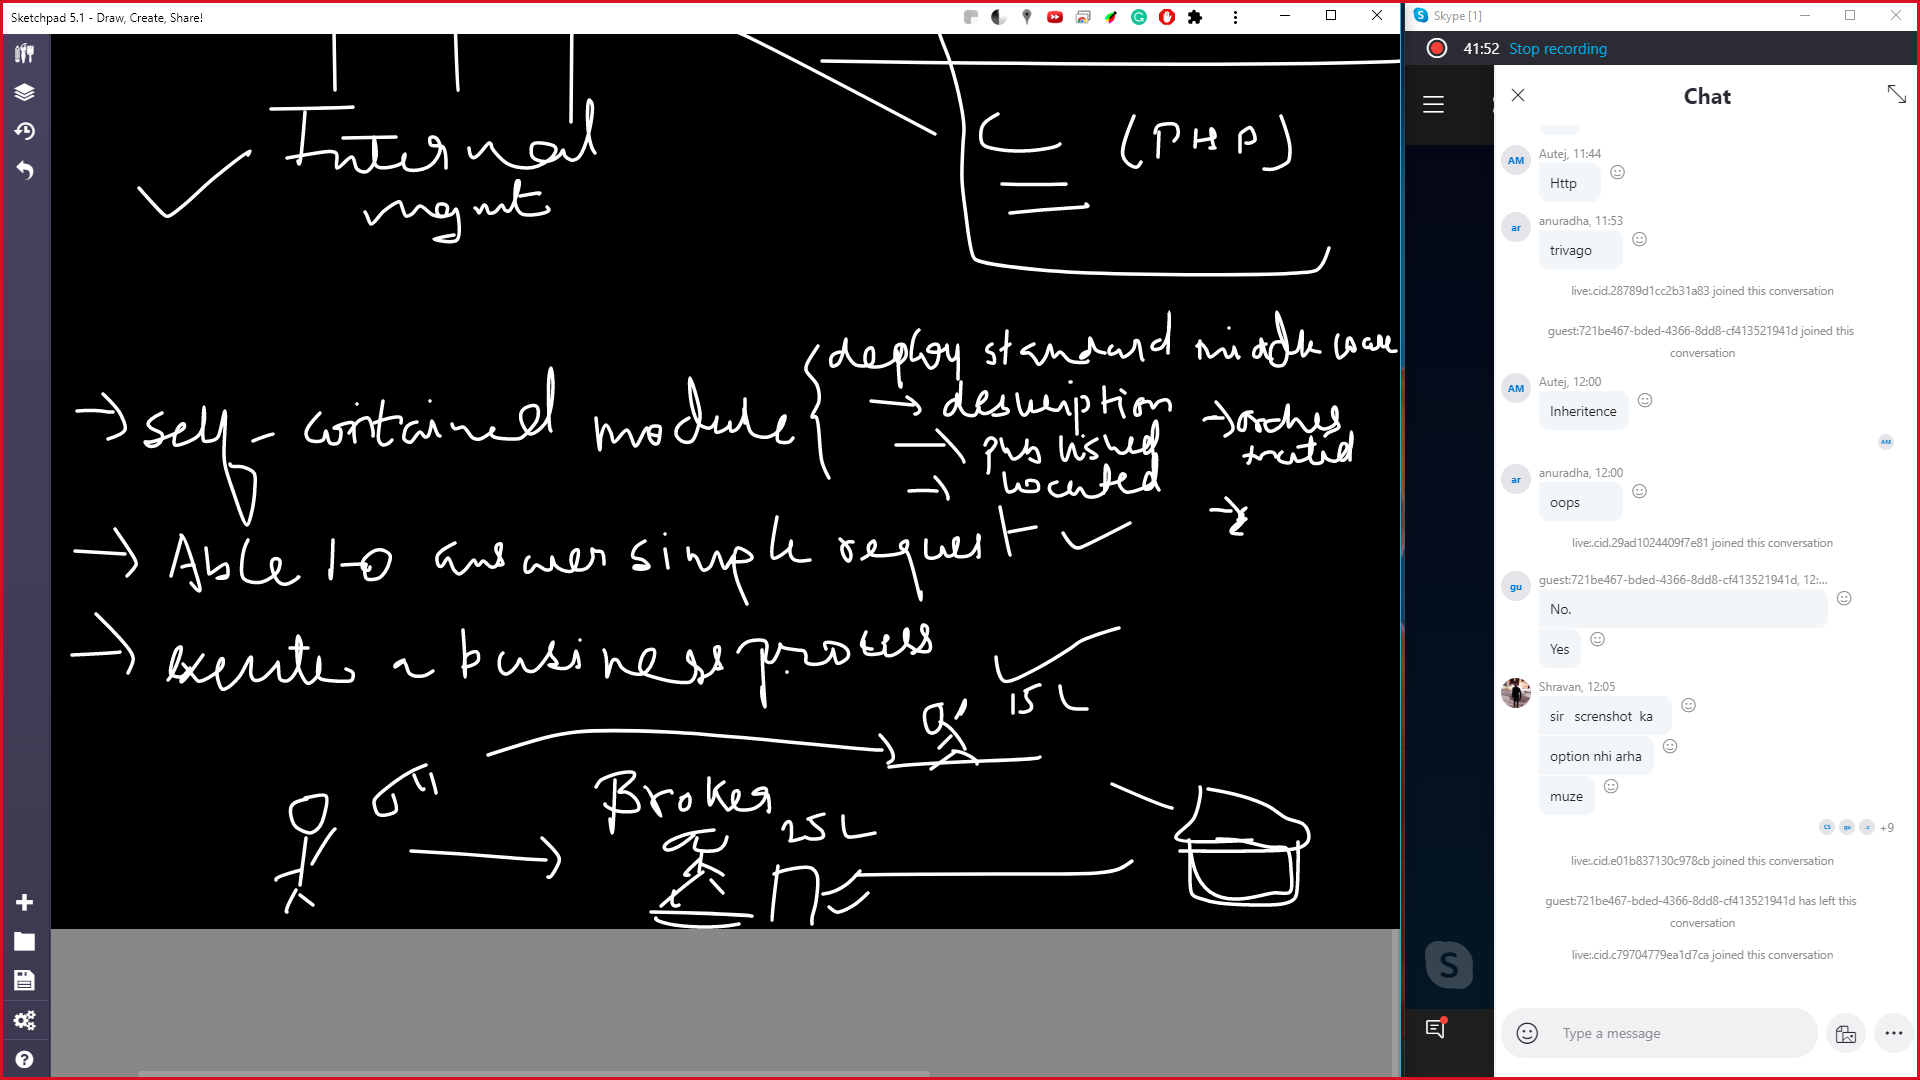 Sketchpad 5.1 - Draw, Create, Share!
Internal
mgmt
C (PHP)
→ self-contained module
deploy standard middleware
→ description
→ published
→ located
→ orches
trated
→ Able to answer simple request
→ execute a business process
15 L
Broker
25 L
Skype [1]
41:52 Stop recording
Chat
AM
Autej, 11:44
Http
ar
anuradha, 11:53
trivago
live:.cid.28789d1cc2b31a83 joined this conversation
guest:721be467-bded-4366-8dd8-cf413521941d joined this
conversation
AM
Autej, 12:00
Inheritence
AM
ar
anuradha, 12:00
oops
live:.cid.29ad1024409f7e81 joined this conversation
gu
guest:721be467-bded-4366-8dd8-cf413521941d, 12:...
No.
Yes
Shravan, 12:05
sir screnshot ka
option nhi arha
muze
CS gu .c +9
live:.cid.e01b837130c978cb joined this conversation
guest:721be467-bded-4366-8dd8-cf413521941d has left this
conversation
live:.cid.c79704779ea1d7ca joined this conversation
Type a message